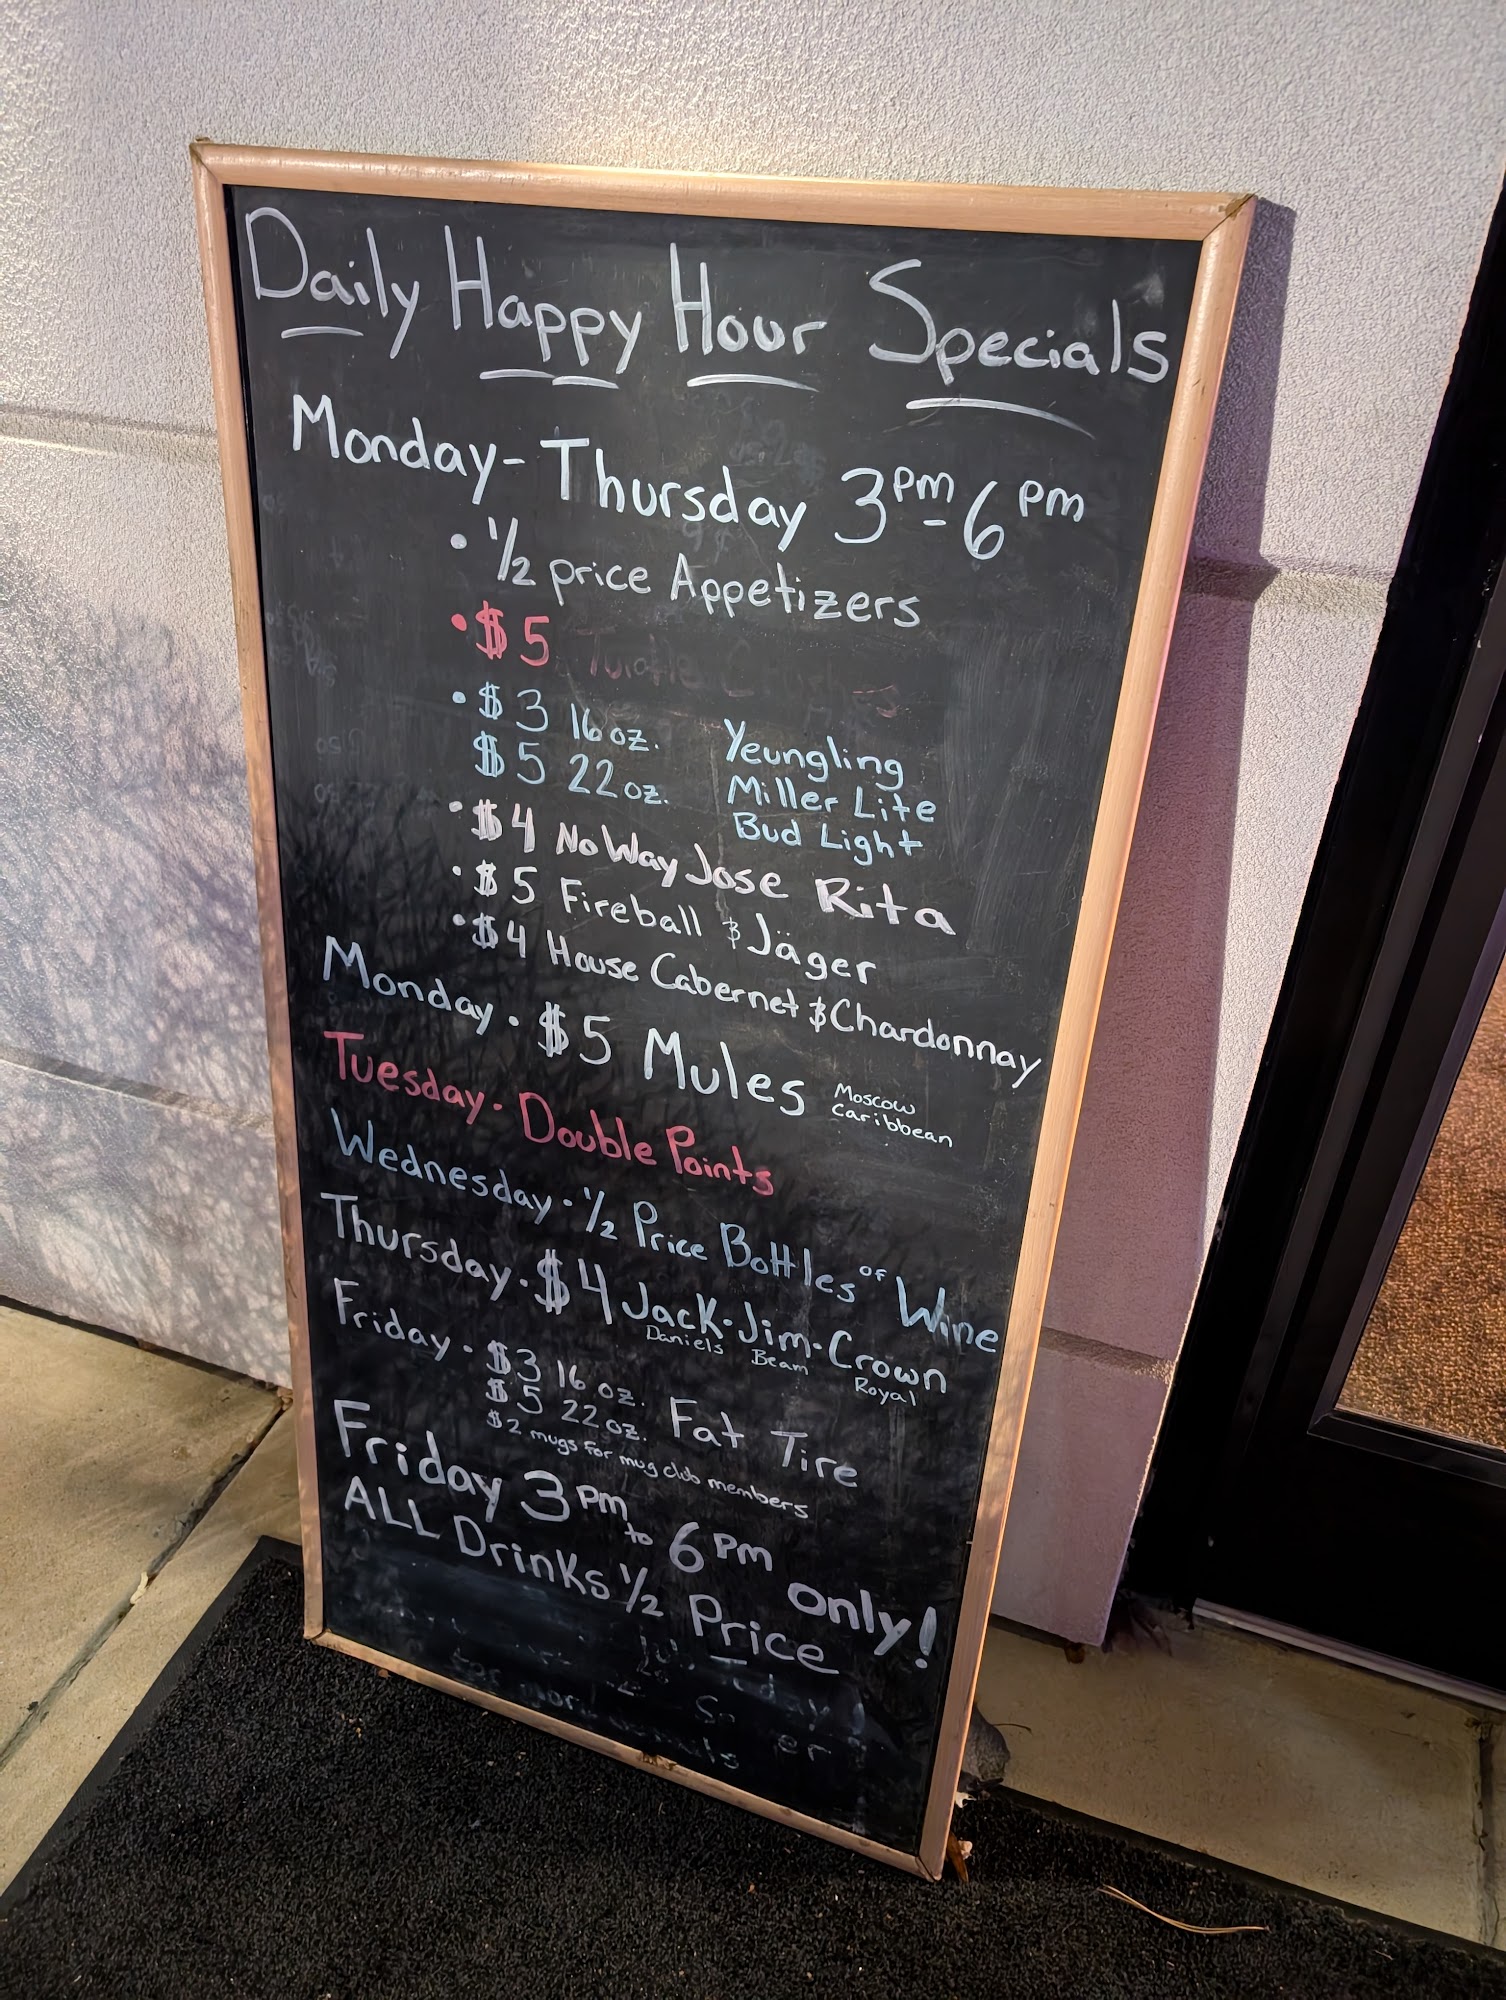 Daily Happy Hour Specials
Monday-Thursday 3pm-6pm
• 1/2 price Appetizers
• $5
• $3 16oz. Yeungling
$5 22oz. Miller Lite
Bud Light
• $4 No Way Jose Rita
• $5 Fireball & Jäger
• $4 House Cabernet & Chardonnay
Monday • $5 Mules Moscow
Caribbean
Tuesday • Double Points
Wednesday • 1/2 Price Bottles of Wine
Thursday • $4 Jack • Jim • Crown
Daniels Beam Royal
Friday • $3 16 oz.
$5 22oz. Fat Tire
$2 mugs for mug club members
Friday 3pm to 6pm only!
ALL Drinks 1/2 Price